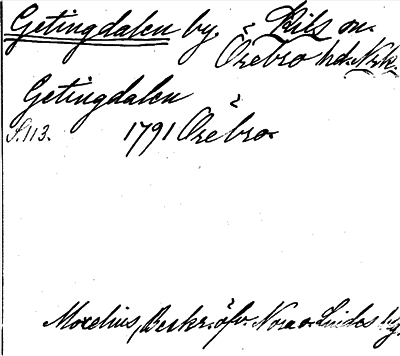 Getingdalen by, Kils sn.
Örebro hd. Nrk.
Getingdalen
S. 113. 1791 Örebro.
Morelius, Beskr. öfv. Nora o. Lindes bg.